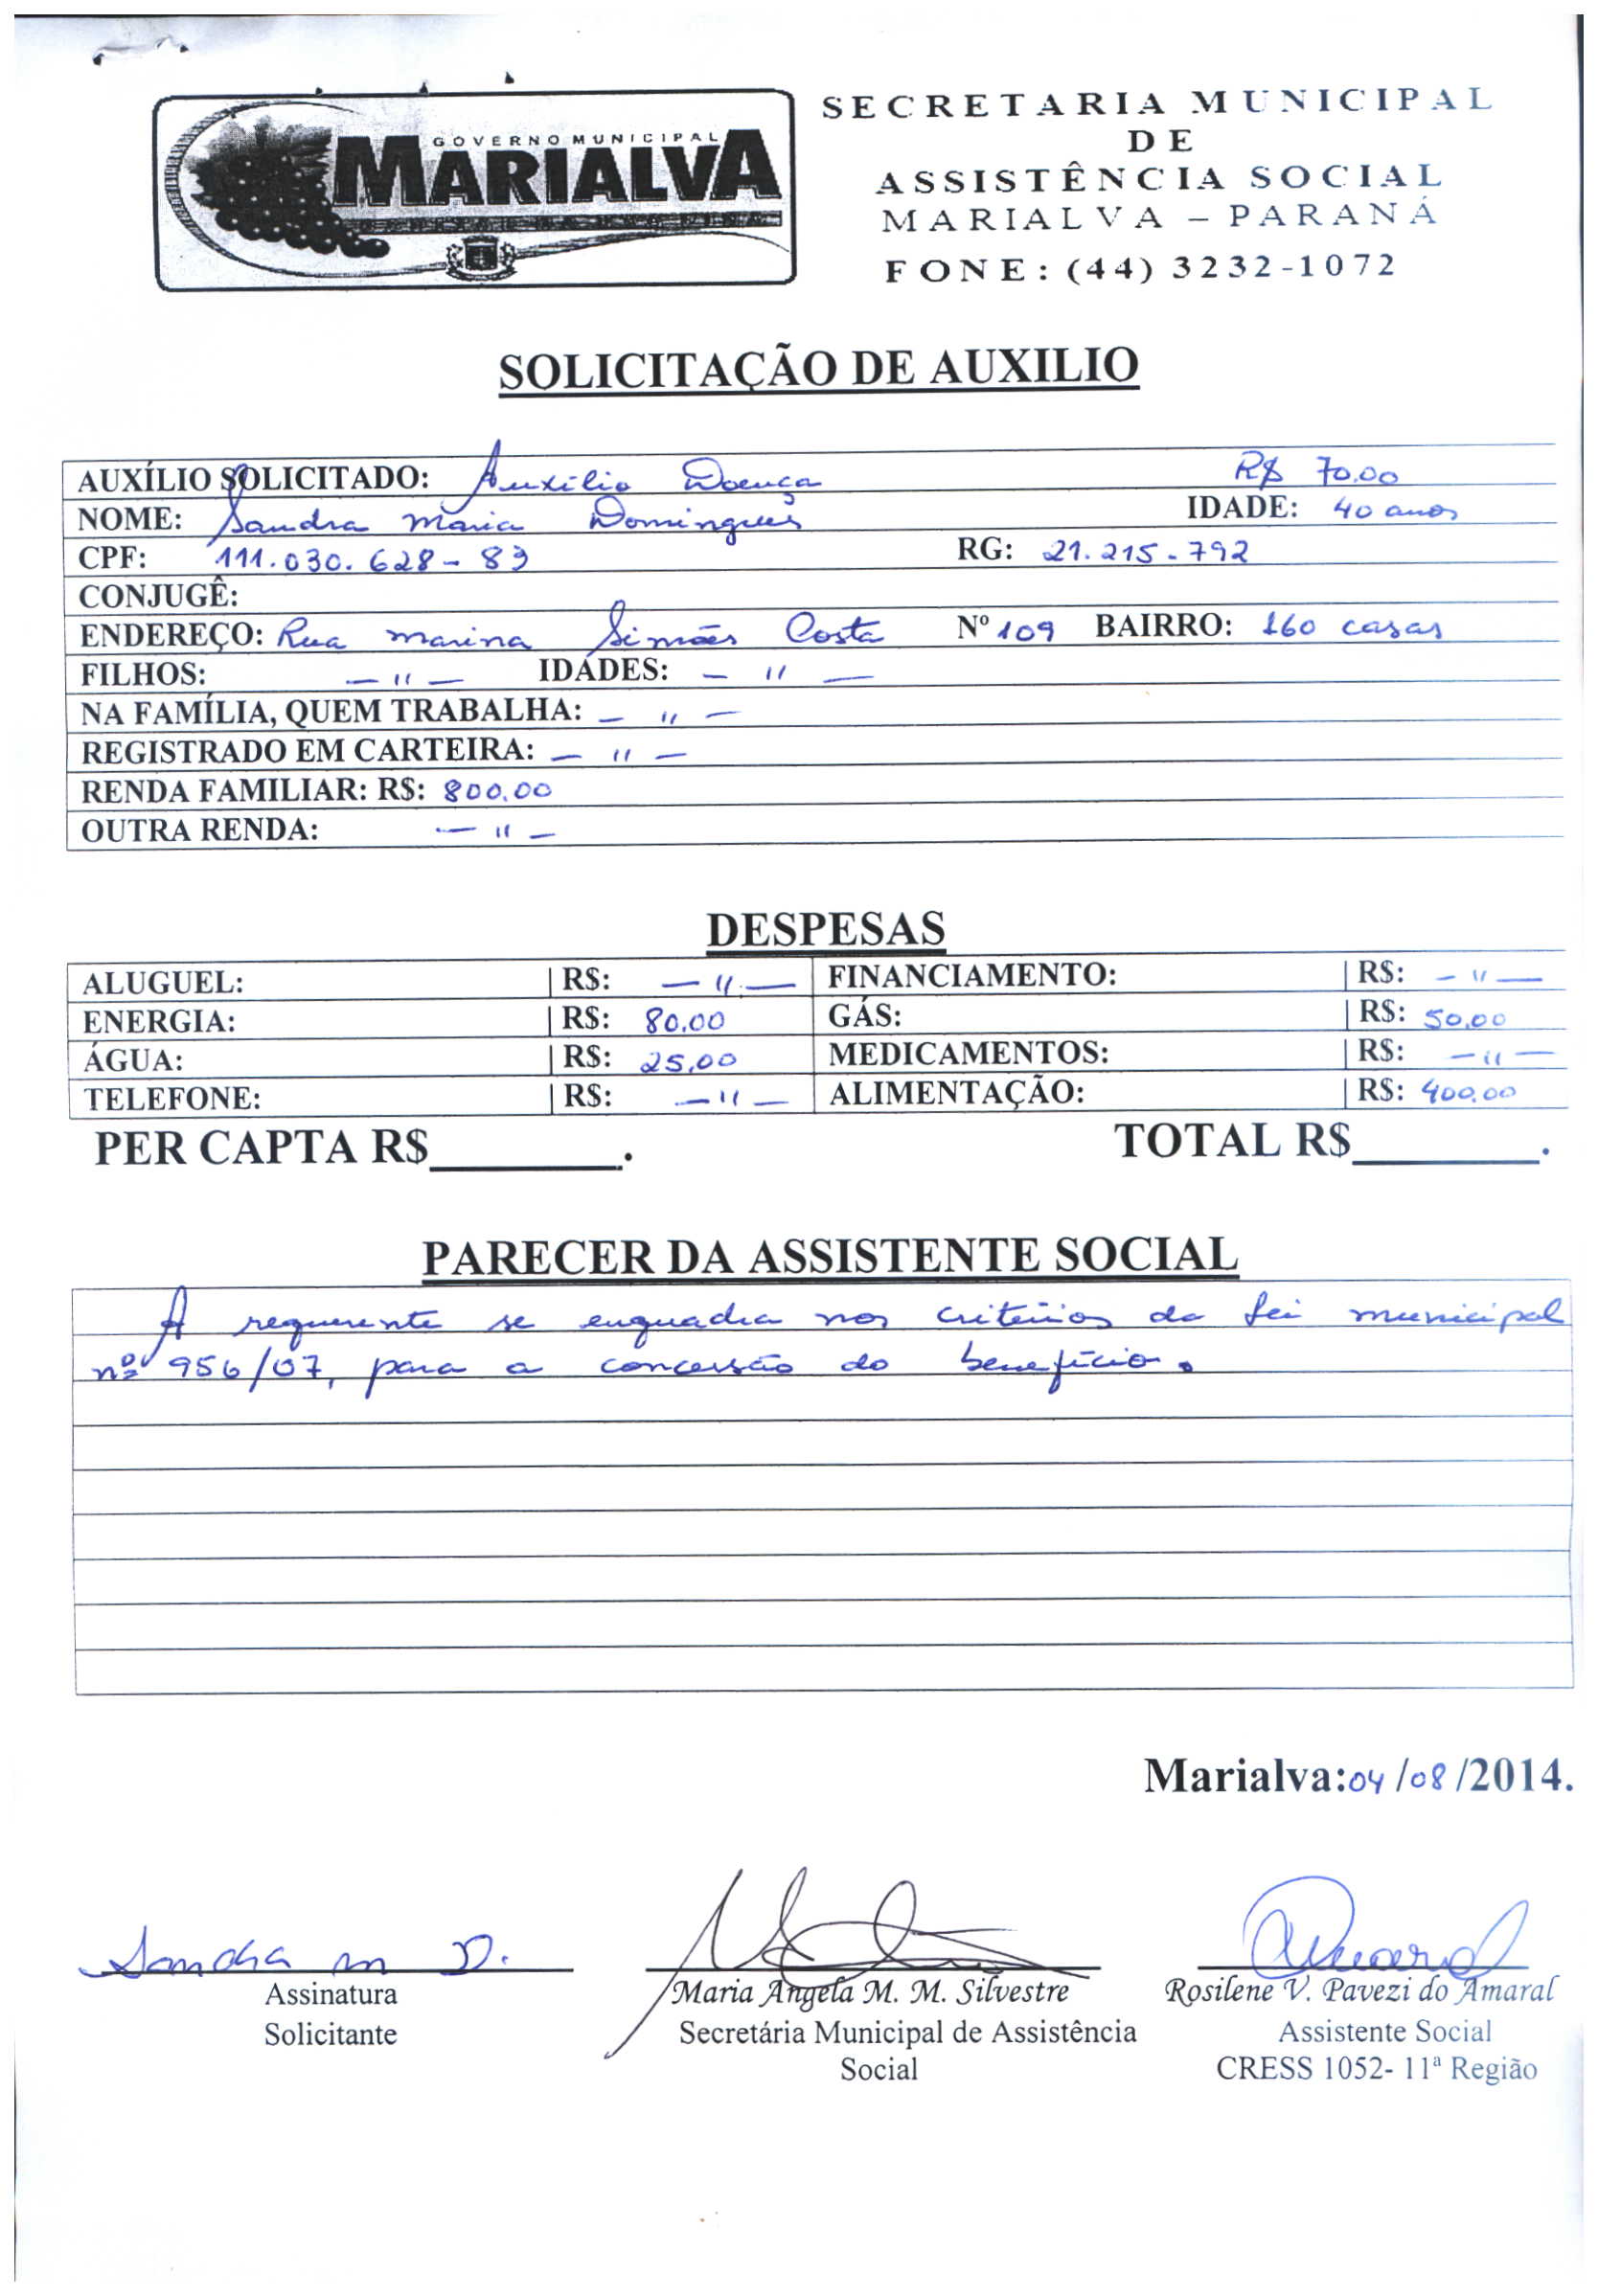 GOVERNO MUNICIPAL
MARIALVA
SECRETARIA MUNICIPAL
DE
ASSISTÊNCIA SOCIAL
MARIALVA – PARANÁ
FONE: (44) 3232-1072
SOLICITAÇÃO DE AUXILIO
AUXÍLIO SOLICITADO: Auxílio Doença R$ 70,00
NOME: Sandra Maria Domingues IDADE: 40 anos
CPF: 111.030.628-83 RG: 21.215.792
CONJUGÊ:
ENDEREÇO: Rua Marina Simões Costa Nº 109 BAIRRO: 160 casas
FILHOS: — " — IDADES: — " —
NA FAMÍLIA, QUEM TRABALHA: — " —
REGISTRADO EM CARTEIRA: — " —
RENDA FAMILIAR: R$: 800,00
OUTRA RENDA: — " —
DESPESAS
ALUGUEL: R$: — " — FINANCIAMENTO: R$: — " —
ENERGIA: R$: 80,00 GÁS: R$: 50,00
ÁGUA: R$: 25,00 MEDICAMENTOS: R$: — " —
TELEFONE: R$: — " — ALIMENTAÇÃO: R$: 400,00
PER CAPTA R$________. TOTAL R$________.
PARECER DA ASSISTENTE SOCIAL
A requerente se enquadra nos critérios da Lei municipal
nº 956/07, para a concessão do benefício.
Marialva: 04/08/2014.
Sandra M D.
Assinatura
Solicitante
Maria Angela M. M. Silvestre
Secretária Municipal de Assistência
Social
Rosilene V. Pavezi do Amaral
Assistente Social
CRESS 1052- 11ª Região